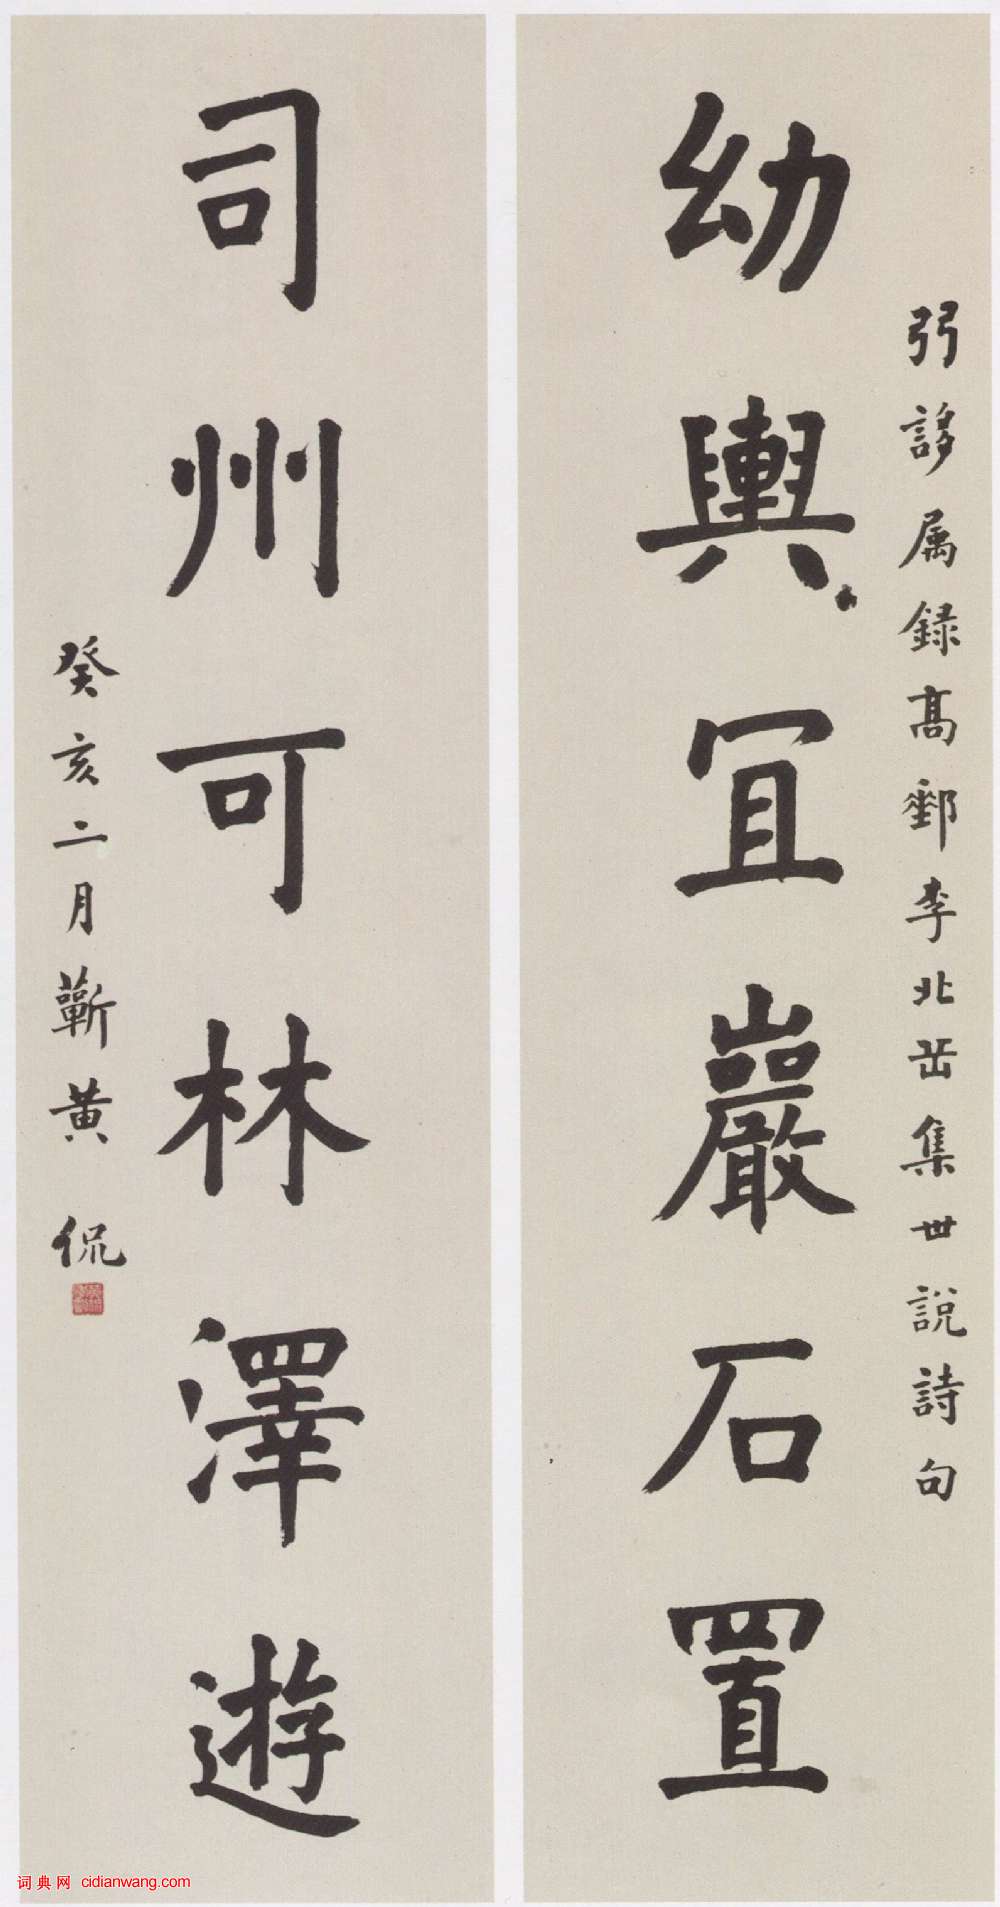 弜誃属録高郵李北岳集世說詩句
幼輿冝巖石置
司州可林澤遊
癸亥二月蘄黄侃
词典网 cidianwang.com